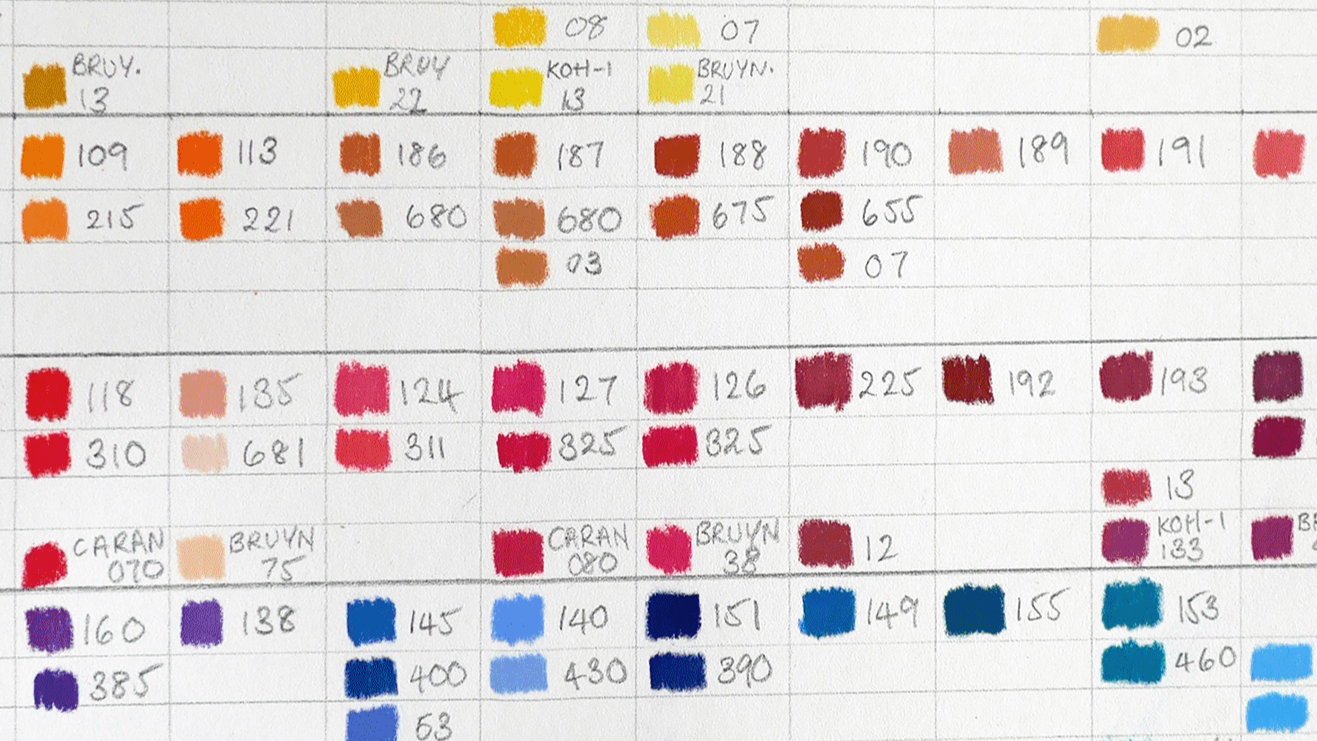 08 07 02
BRUY. BRUY KOH-I BRUYN.
13 22 13 21
109 113 186 187 188 190 189 191
215 221 680 680 675 655
03 07
118 135 124 127 126 225 192 193
310 681 311 325 325
13
CARAN BRUYN CARAN BRUYN 12 KOH-I
070 75 080 38 133
160 138 145 140 151 149 155 153
385 400 430 390 460
53